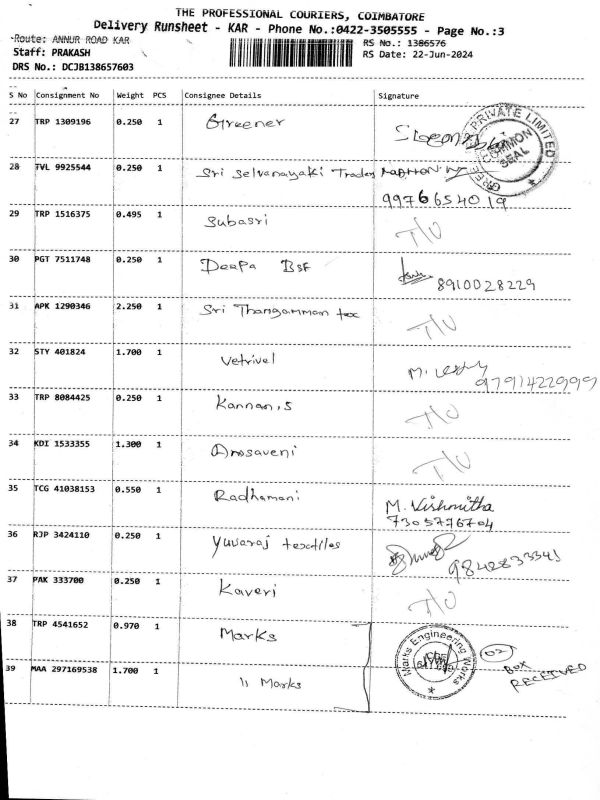 THE PROFESSIONAL COURIERS, COIMBATORE
Delivery Runsheet - KAR - Phone No.:0422-3505555 - Page No.:3
Route: ANNUR ROAD KAR RS No.: 1386576
Staff: PRAKASH RS Date: 22-Jun-2024
DRS No.: DCJB138657603
S No Consignment No Weight PCS Consignee Details Signature
27 TRP 1309196 0.250 1 Greener
PRIVATE LIMITED
COMMON
SEAL
28 TVL 9925544 0.250 1 Sri Selvanayaki Trades
9976654019
29 TRP 1516375 0.495 1 Subasri T/U
30 PGT 7511748 0.250 1 Deepa BSF
8910028229
31 APK 1290346 2.250 1 Sri Thangamman tex T/U
32 STY 401824 1.700 1 Vetrivel M.
979114229999
33 TRP 8084425 0.250 1 Kannan.S T/U
34 KDI 1533355 1.300 1 T/U
35 TCG 41038153 0.550 1 Radhamani M. Vishmitha
7305776704
36 RJP 3424110 0.250 1 Yuvaraj textiles
9842833341
37 PAK 333700 0.250 1 Kaveri T/U
38 TRP 4541652 0.970 1 Marks
Marks Engineering Works
02
BOX
RECEIVED
39 MAA 297169538 1.700 1 11 Marks